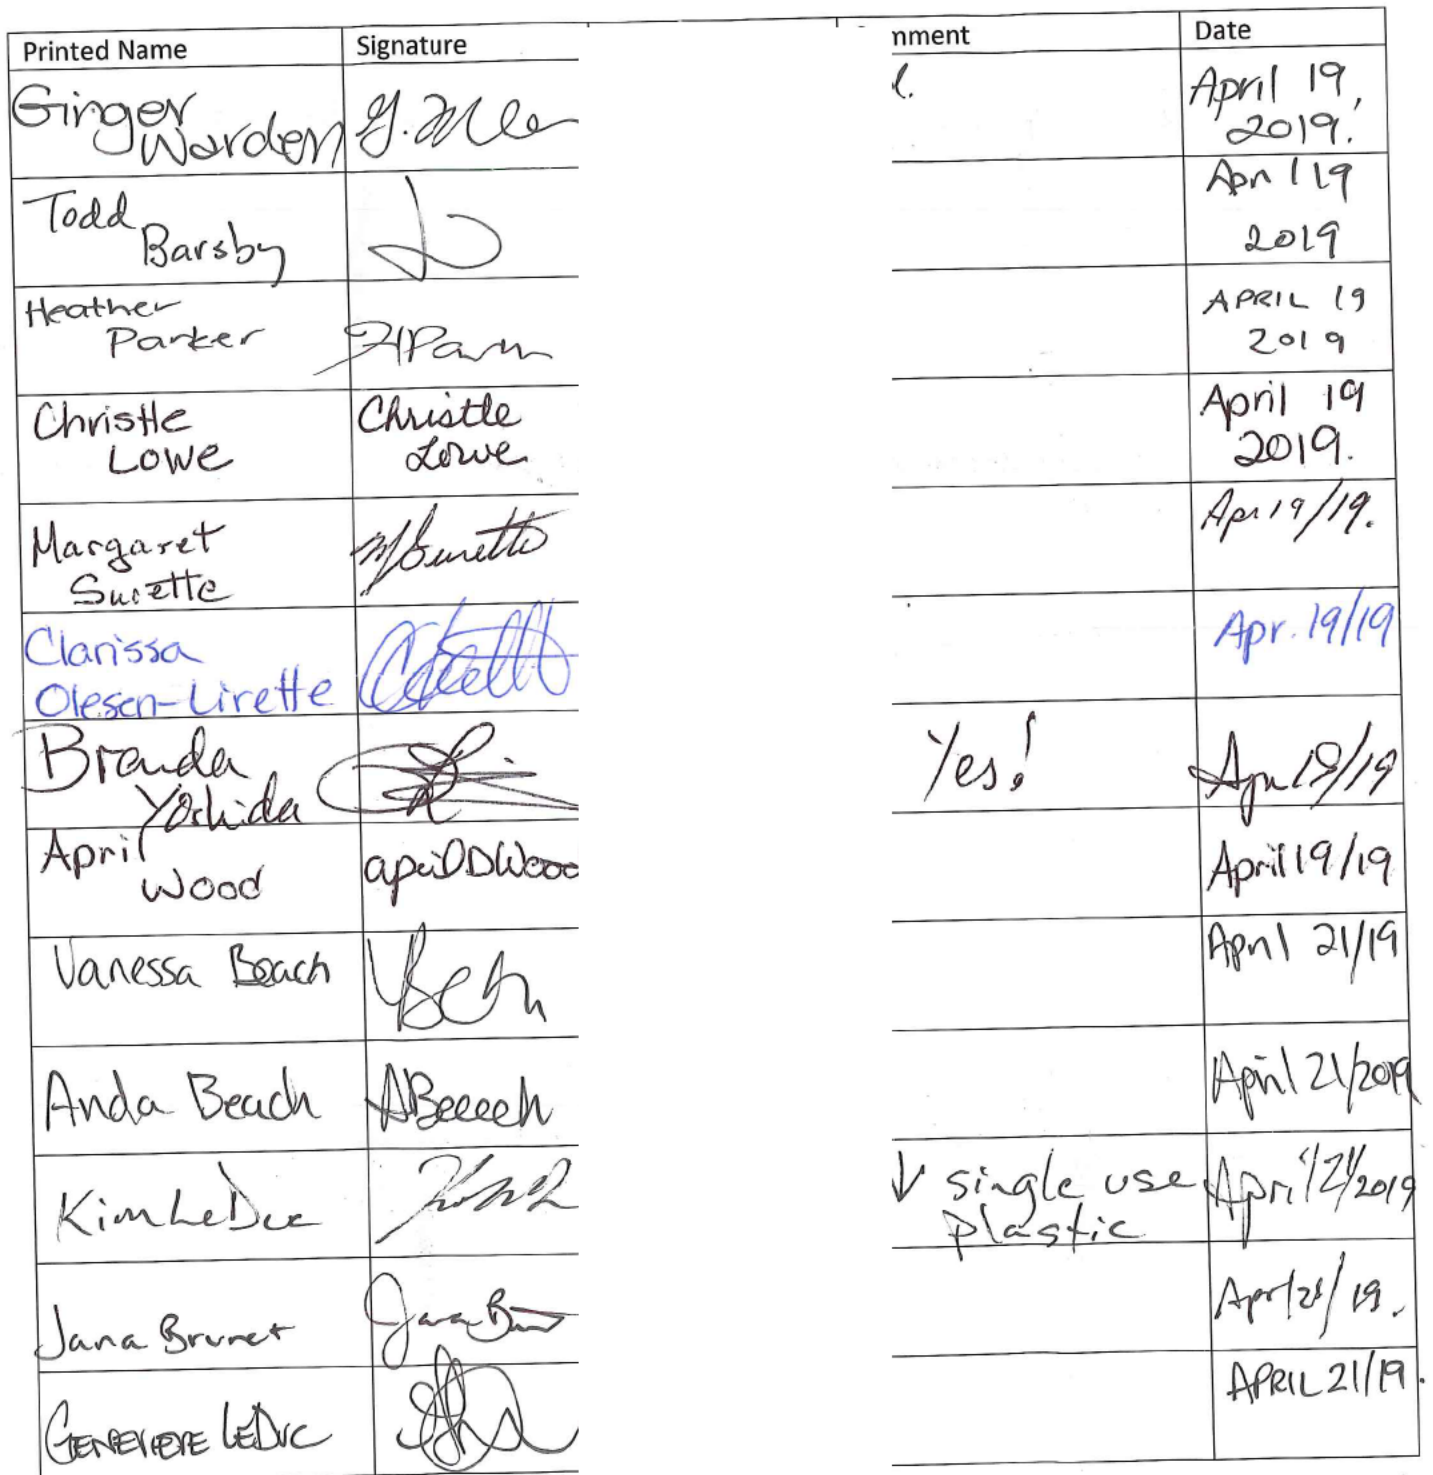 Printed Name Signature mment Date
Ginger Warden April 19, 2019.
Todd Barsby April 19 2019
Heather Parker APRIL 19 2019
Christle Lowe Christle Lowe April 19 2019.
Margaret Surette MSurette Apr 19/19.
Clarissa Olesen-Lirette Apr. 19/19
Brenda Yoshida Yes! Apr 19/19
April Wood April D Wood April 19/19
Vanessa Beach April 21/19
Anda Beach ABeeech April 21/2019
Kim LeDuc ↓ single use plastic April 21/2019
Jana Brunet Jana April 21/19.
GENEVIEVE LEDUC APRIL 21/19.